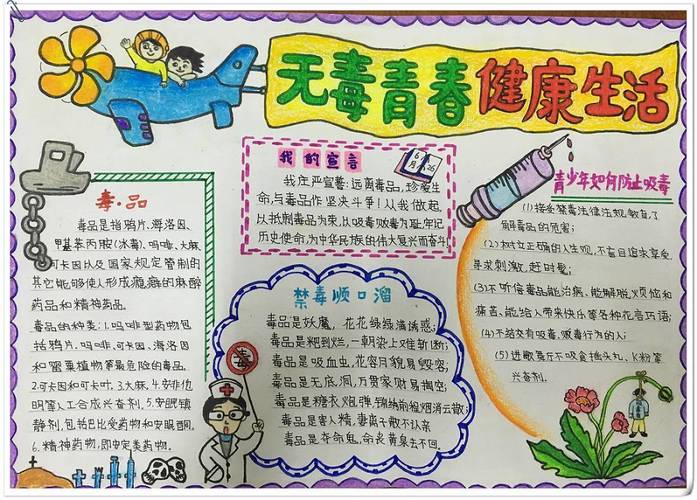 无毒青春健康生活
我的宣言
6月26
我庄严宣誓:远离毒品,珍爱生
命,与毒品作坚决斗争!从我做起,
以抵制毒品为荣,以吸毒贩毒为耻,牢记
历史使命,为中华民族的伟大复兴而奋斗
毒·品
毒品是指鸦片、海洛因、
甲基苯丙胺(冰毒)、吗啡、大麻、
可卡因以及国家规定管制的
其它能够使人形成瘾癖的麻醉
药品和精神药品。
毒品的种类:1.吗啡型药物包
括鸦片、吗啡、可卡因、海洛因
和罂粟植物等最危险的毒品。
2.可卡因和可卡叶、3.大麻、4.安非他
明等人工合成兴奋剂、5.安眠镇
静剂,包括巴比妥药物和安眠酮。
6.精神药物,即安定类药物。
禁毒顺口溜
毒品是妖魔,花花绿绿满诱惑;
毒品是粑到烂,一朝染上又难斩断;
毒品是吸血虫,花容月貌易毁容;
毒品是无底洞,万贯家财易掏空;
毒品是糖衣炮弹,锦绣前程烟消云散;
毒品是害人精,妻离子散不认亲;
毒品是夺命鬼,命丧黄泉去不回.
毒
青少年如何防止吸毒
(1)接受禁毒法律法规教育,了
解毒品的危害;
(2)树立正确的人生观,不盲目追求享受
寻求刺激,赶时髦;
(3)不听信毒品能治病,能解脱烦恼和
痛苦,能给人带来快乐等各种花言巧语;
(4)不结交有吸毒、贩毒行为的人;
(5)进歌舞厅不吸食摇头丸、K粉等
兴奋剂.